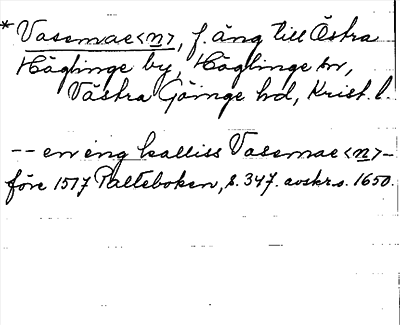 * Vasemae<n>, f. äng till Östra
Häglinge by, Häglinge sn,
Västra Göinge hd, Krist. l.
-- en eng kalliss Vasemae<n> -
före 1517 Palteboken, s. 347. avskr. s. 1650.